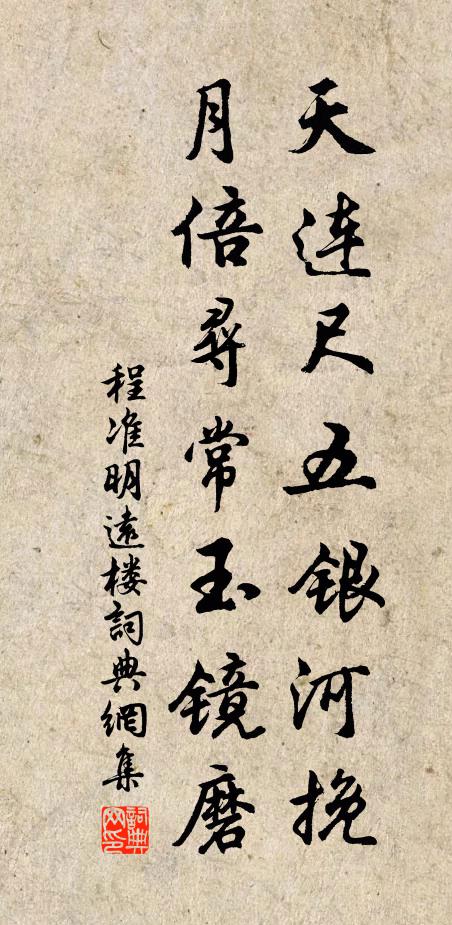 天连尺五银河挽
月倍尋常玉镜磨
程准明遠楼詞典網集
詞典网印